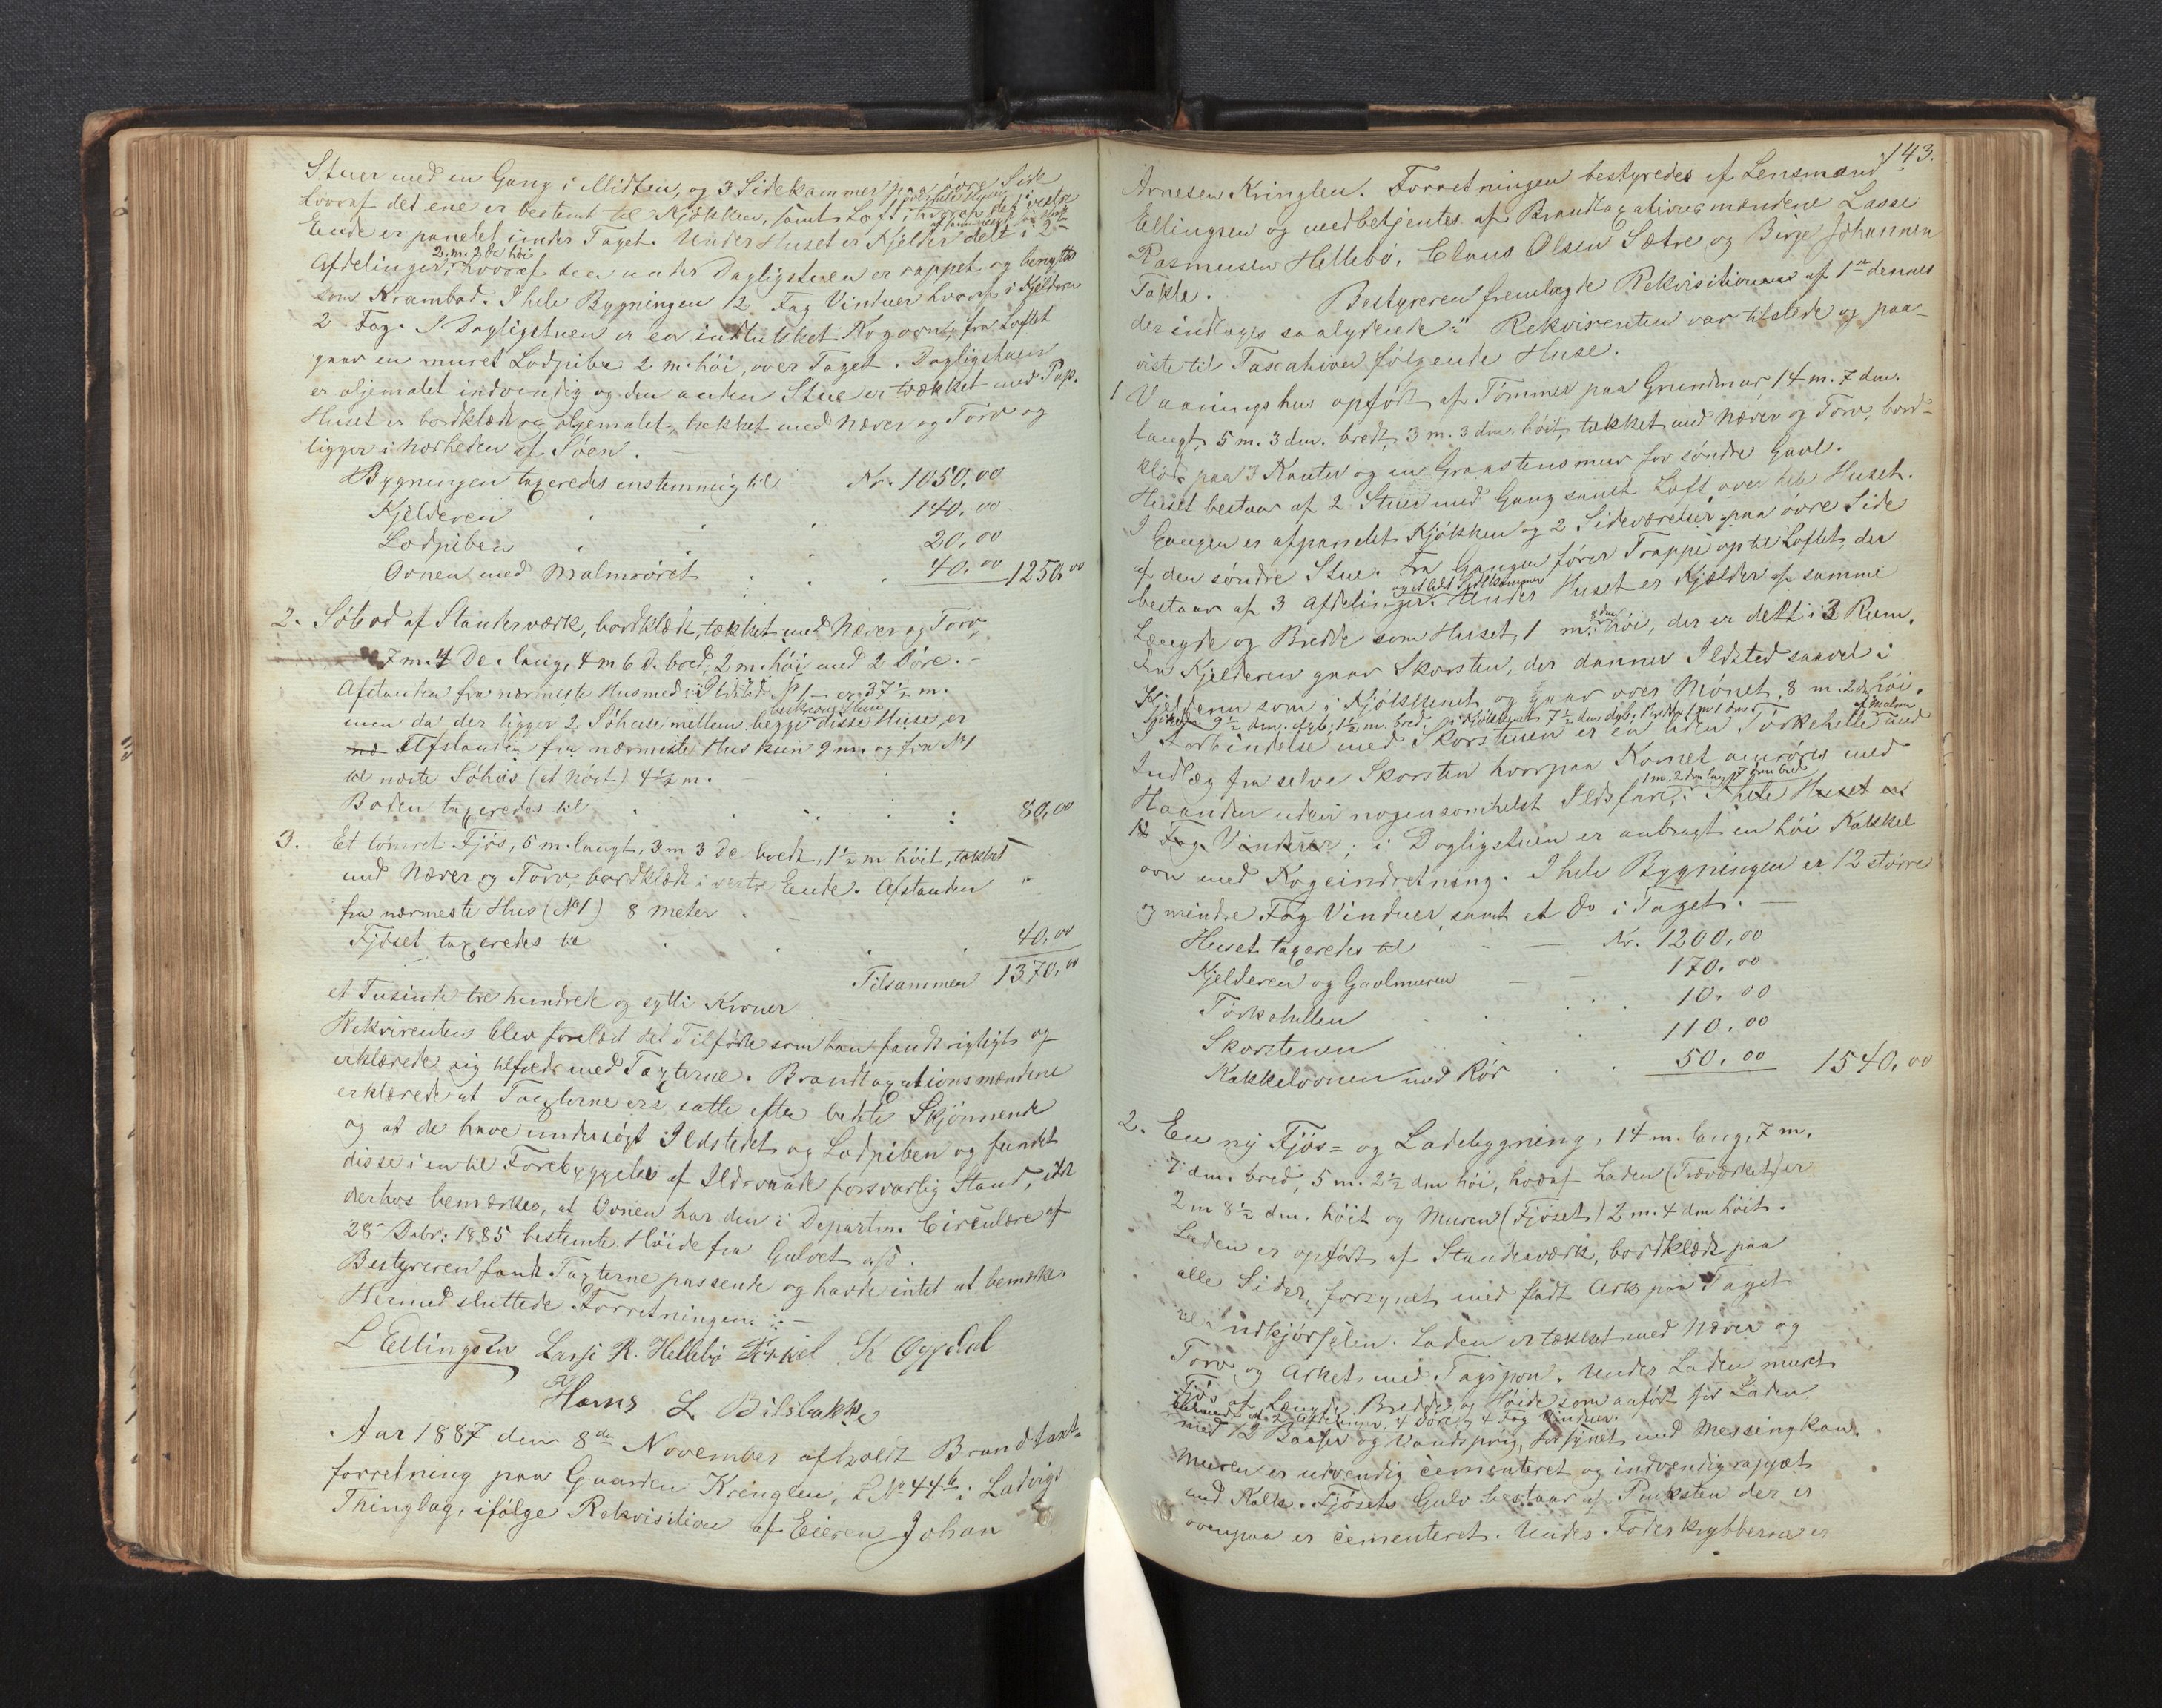 Stuer med en Gang i Midten, og 3 Sidekammer paa øvre Side
hvoraf det ene er bestemt til Kjøkken, samt Loft i hvis vestre
Ende er panelet under Taget. Under Huset er Kjelder delt i 2de
2 m. 2 De høi
Afdelinger, hvoraf den under Dagligstuen er rappet og benyttes
som Krambod. I hele Bygningen 12 Fag Vinduer hvoraf i Kjelderen
2 Fag. I Dagligstuen er en indmuret Kogeovn, fra Loftet
gaar en muret Lodpibe 2 m. høi, over Taget. Dagligstuen
er oljemalet indvendig og den anden Stue er trækket med Pap.
Huset er bordklædt og oljemalet, tækket med Næver og Torv og
ligger i nærheden af Søen.
Bygningen taxeredes enstemmig til Kr. 1050,00
Kjelderen 140,00
Lodpiben 20,00
Ovnen med Malmrøret 40,00 1250,00
2. Søbod af Standerværk, bordklædt, tækket med Næver og Torv,
7 m. 4 De. lang, 4 m 6 D. bred, 2 m. høi med 2 Døre. -
Afstanden fra nærmeste Hus med Ildsted No 1 - er 37½ m.
men da der ligger 2 Søhuse mellem begge disse Huse, er
Afstanden fra nærmeste Hus kun 9 m. og fra No 1
til næste Søhus (et Nøst) 4½ m.
Boden taxeredes til 80,00
3. Et tømret Fjøs, 5 m. langt, 3 m 3 De bredt, 1½ m høit, tækket
med Næver og Torv, bordklædt i vestre Ende. Afstanden
fra nærmeste Hus (No 1) 8 Meter.
Fjøset taxeredes til 40,00
Tilsammen 1370,00
et Tusinde tre hundrede og sytti Kroner
Rekvirenten blev forelæst det Tilførte som han fandt rigtigt og
erklærede sig tilfreds med Taxterne. Brandtaxationsmændene
erklærede at Taxterne ere satte efter bedste Skjønnende
og at de have undersøgt Ildstedet og Lodpiben og fundet
disse i en til Forebyggelse af Ildsvaade forsvarlig Stand, idet
derhos bemærkes, at Ovnen har den i Departm. Circulære af
28 Dcbr: 1885 bestemte Høide fra Gulvet af.
Bestyreren fandt Taxterne passende og havde intet at bemærke.
Hermed sluttede Forretningen. -
L Ellingsen Lasse R. Hellebø K Oppdal
Hans L Bilsbakke
Aar 1887 den 8de November afholdt Brandtaxt-
forretning paa Gaarden Kringlen, L No 44b i Ladvigs
Thinglag, ifølge Rekvisition af Eieren Johan
143.
Arnesen Kringlen. Forretningen bestyredes af Lensmand
Ellingsen og medbetjentes af Brandtaxationsmændene Lasse
Rasmusen Hellebø, Claus Olsen Sætre og Birje Johannesen
Takle. Bestyreren fremlagde Rekvisitionen af 1ste dennes
der indtages saalydende: " Rekvirenten var tilstede og paa-
viste til Taxation følgende Huse.
1 Vaaningshus opført af Tømmer paa Grundmur 14 m. 7 dm.
langt, 5 m. 3 dm. bredt, 3 m. 3 dm. høit, tækket med Næver og Torv, bord-
klædt paa 3 Kanter og en Graastensmur for søndre Gavl.
Huset bestaar af 2 Stuer med Gang samt Loft over hele Huset.
I Gangen er afpanelet Kjøkken og 2 Sideværelser paa øvre Side
af den søndre Stue. Fra Gangen fører Trappe op til Loftet, der
bestaar af 3 Afdelinger. Under Huset er Kjælder af samme
Længde og Bredde som Huset, 1 m. høi, der er delt i 3 Rum.
Fra Kjelderen gaar Skorsten, der danner Ildsted saavel i
Kjelderen som i Kjøkkenet og gaar over Mønet, 8 m. 2 dm høi,
I Forbindelse med Skorstenen er en liden Tørkehelle med
Indlæg fra selve Skorsten hvorpaa Kornet omrøres med
1 m. 2 dm lang, 7 dm bred
Haanden uden nogensomhelst Ildsfare; I hele Huset er
12 Fag Vinduer; i Dagligstuen er anbragt en høi Kakkel
ovn med Kogeindretning. I hele Bygningen er 12 større
og mindre Fag Vinduer, samt et do i Taget. -
Huset taxeredes til Kr. 1200,00
Kjelderen og Gavlmuren 170,00
Tørkehellen 10,00
Skorstenen 110,00
Kakkelovnen med Rør 50,00 1540,00
2. En ny Fjøs= og Ladebygning, 14 m. lang, 7 m.
7 dm. bred, 5 m. 2½ dm høi, hvoraf Laden (Træværket) er
2 m 8½ dm. høit og Muren (Fjøset) 2 m. 4 dm høit.
Laden er opført af Standerværk, bordklædt paa
alle Sider, forsynet med fladt Ark paa Taget
til Indkjørselen. Laden er tækket med Næver og
Torv og Arket med Tagspon. Under Laden muret
Fjøs af Længde, Bredde og Høide som anført for Laden
Afdelinger, 4 Døre og 4 Fag Vinduer.
med 12 Baaser og Vandspring, forsynet med Messingkran.
Muren er udvendig cementeret og indvendig rappet
med Kalk. Fjøsets Gulv bestaar af Puksten der er
ovenpaa er cementeret. Under Foderkrybberne er